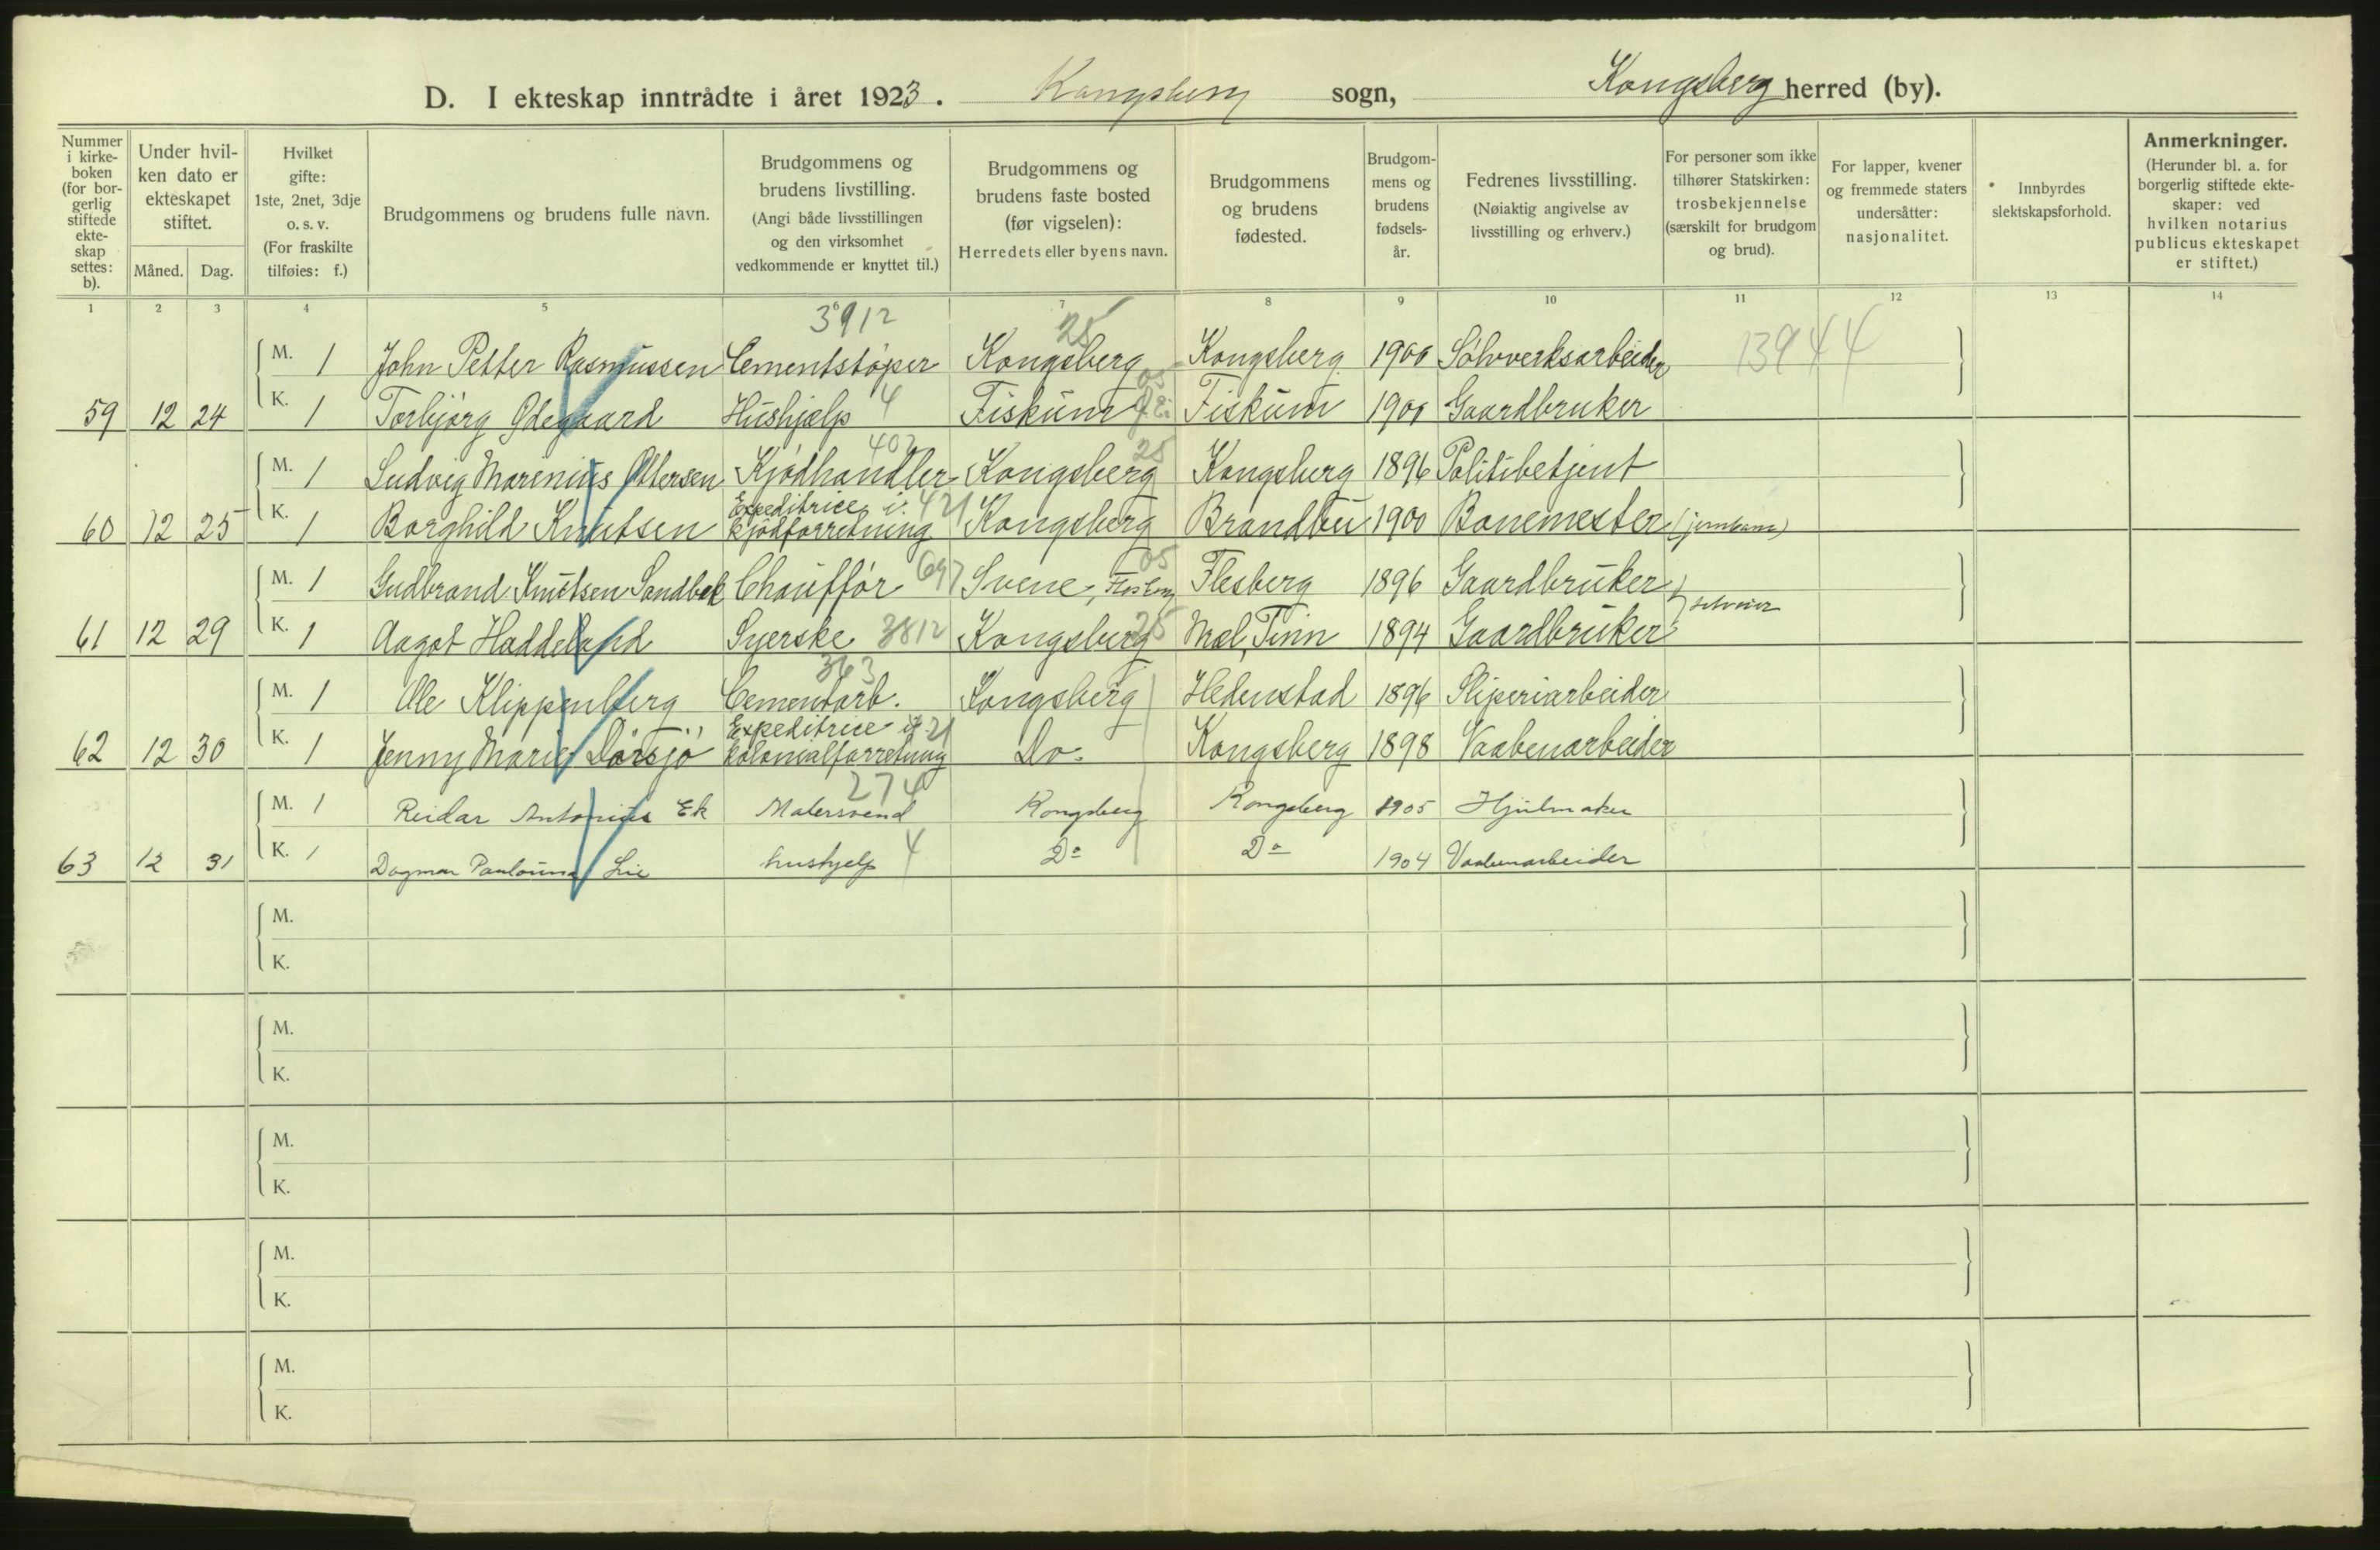 D. I ekteskap inntrådte i året 1923. Kongsberg sogn, Kongsberg herred (by).
Nummer i kirkeboken (for borgerlig stiftede ekteskap settes: b).
Under hvilken dato er ekteskapet stiftet.
Måned. Dag.
Hvilket gifte: 1ste, 2net, 3dje o. s. v. (For fraskilte tilføies: f.)
Brudgommens og brudens fulle navn.
Brudgommens og brudens livstilling. (Angi både livsstillingen og den virksomhet vedkommende er knyttet til.)
Brudgommens og brudens faste bosted (før vigselen): Herredets eller byens navn.
Brudgommens og brudens fødested.
Brudgommens og brudens fødselsår.
Fedrenes livsstilling. (Nøiaktig angivelse av livsstilling og erhverv.)
For personer som ikke tilhører Statskirken: trosbekjennelse (særskilt for brudgom og brud).
For lapper, kvener og fremmede staters undersåtter: nasjonalitet.
Innbyrdes slektskapsforhold.
Anmerkninger. (Herunder bl. a. for borgerlig stiftede ekteskaper: ved hvilken notarius publicus ekteskapet er stiftet.)
1 2 3 4 5 6 7 8 9 10 11 12 13 14
3912 25
M. 1 John Petter Rasmussen Cementstøper Kongsberg Kongsberg 1900 Sølvverksarbeider 13944
59 12 24 K. 1 Torbjørg Ødegaard Hushjælp 4 Fiskum Fiskum 1900 Gaardbruker
402 25
M. 1 Ludvig Marenius Ottersen Kjødhandler Kongsberg Kongsberg 1896 Politibetjent
Expeditrice i 421
60 12 25 K. 1 Borghild Knutsen kjødforretning Kongsberg Brandbu 1900 Banemester (jernbane)
05
M. 1 Gudbrand Knutsen Sandbek Chauffør 697 Svene, Flesberg Flesberg 1896 Gaardbruker
selveier
61 12 29 K. 1 Aagot Haddeland Syerske 3812 Kongsberg 25 Mæl, Tinn 1894 Gaardbruker
363
M. 1 Ole Klippenberg Cementarb. Kongsberg Hedenstad 1896 Sliperiarbeider
Expeditrice i 421
62 12 30 K. 1 Jenny Marie Dørsjø kolonialforretning Do. Kongsberg 1898 Vaabenarbeider
274
M. 1 Reidar Antonius Ek Malersvend Kongsberg Kongsberg 1905 Hjulmaker
63 12 31 K. 1 Dagmar Paulouise Lie hushjelp 4 Do Do 1904 Vaabenarbeider
M.
K.
M.
K.
M.
K.
M.
K.
M.
K.